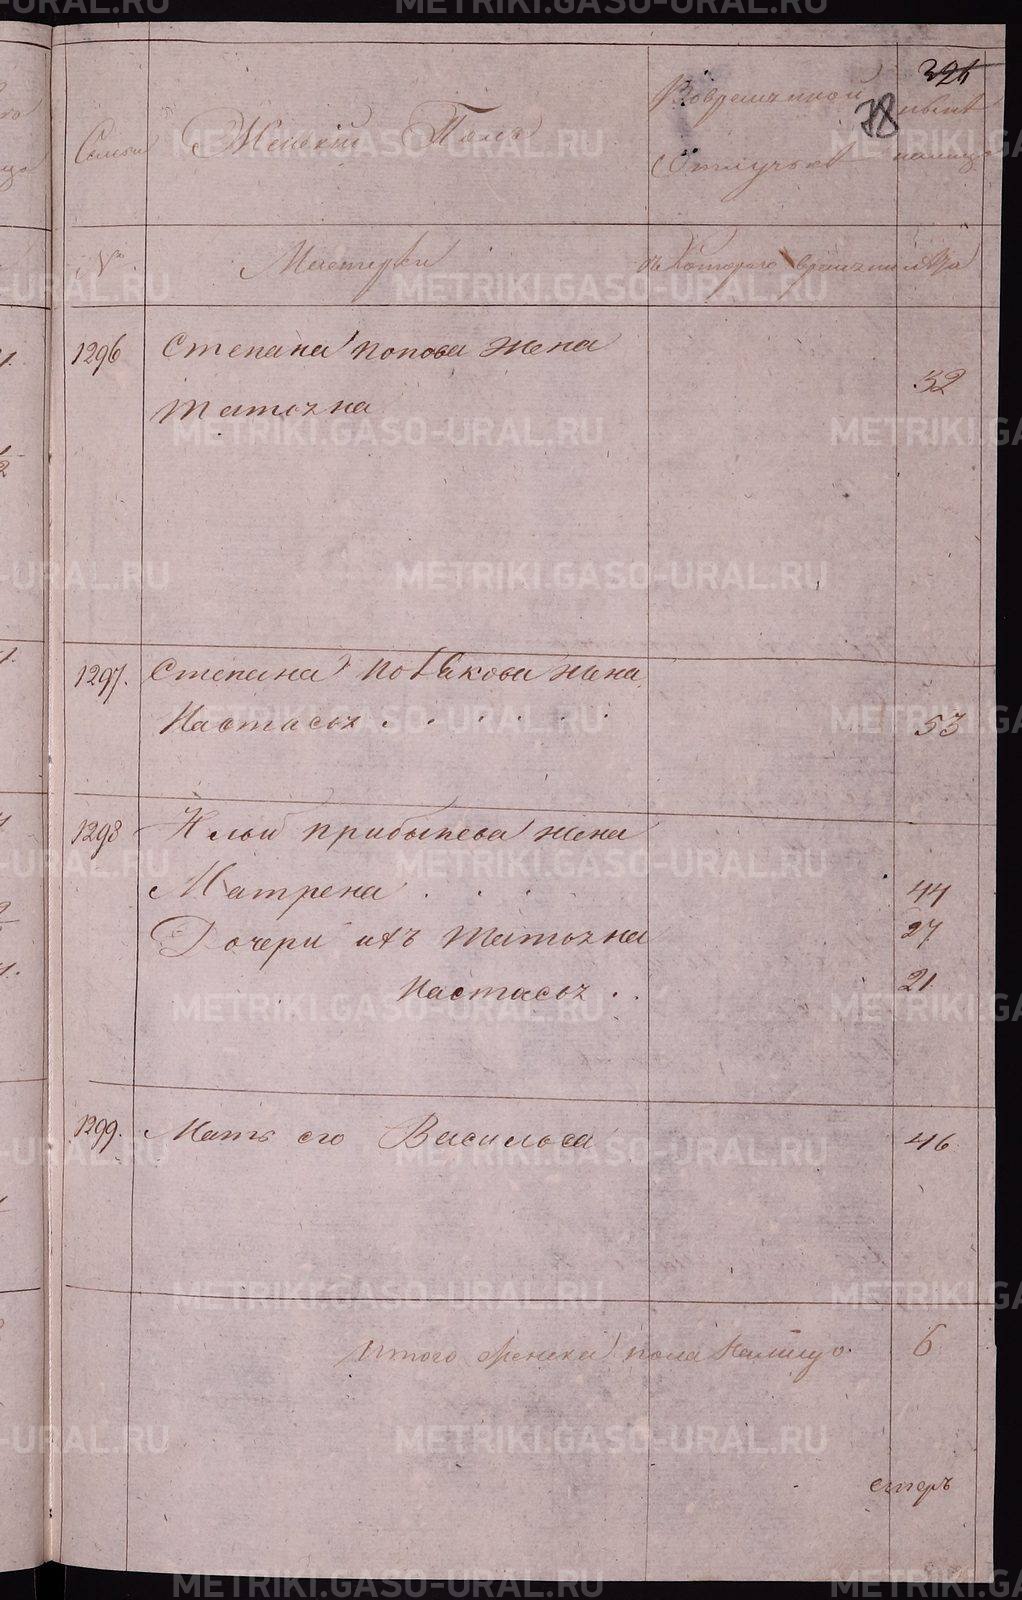 326
78
Семьи Женскiй Полъ Вовременной Отлучкѣ ныне налицо
№ Мастерки Съ Которого времени Лѣта
1296 Степана Попова жена
Татьяна 32
1297. Степана Поткова жена
Настасья . . . . . . 53
1298 Ильи Прибытева жена
Матрена . . . . 44
Дочери ихъ Татьяна 27
Настасья . . 21
1299. Мать его Василиса 46
Итого женска пола Налицо. 6
METRIKI.GASO-URAL.RU